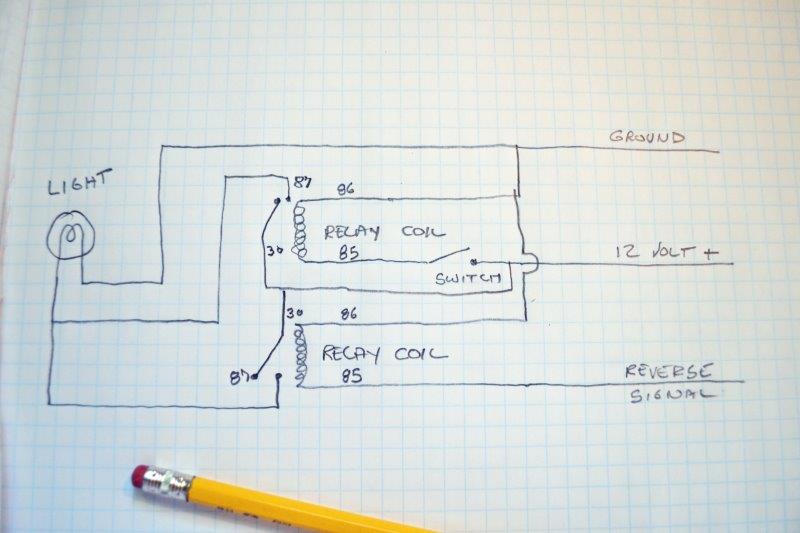 GROUND
LIGHT
87
86
RELAY COIL
30
85
12 VOLT +
SWITCH
30
86
RELAY COIL
87
85
REVERSE
SIGNAL